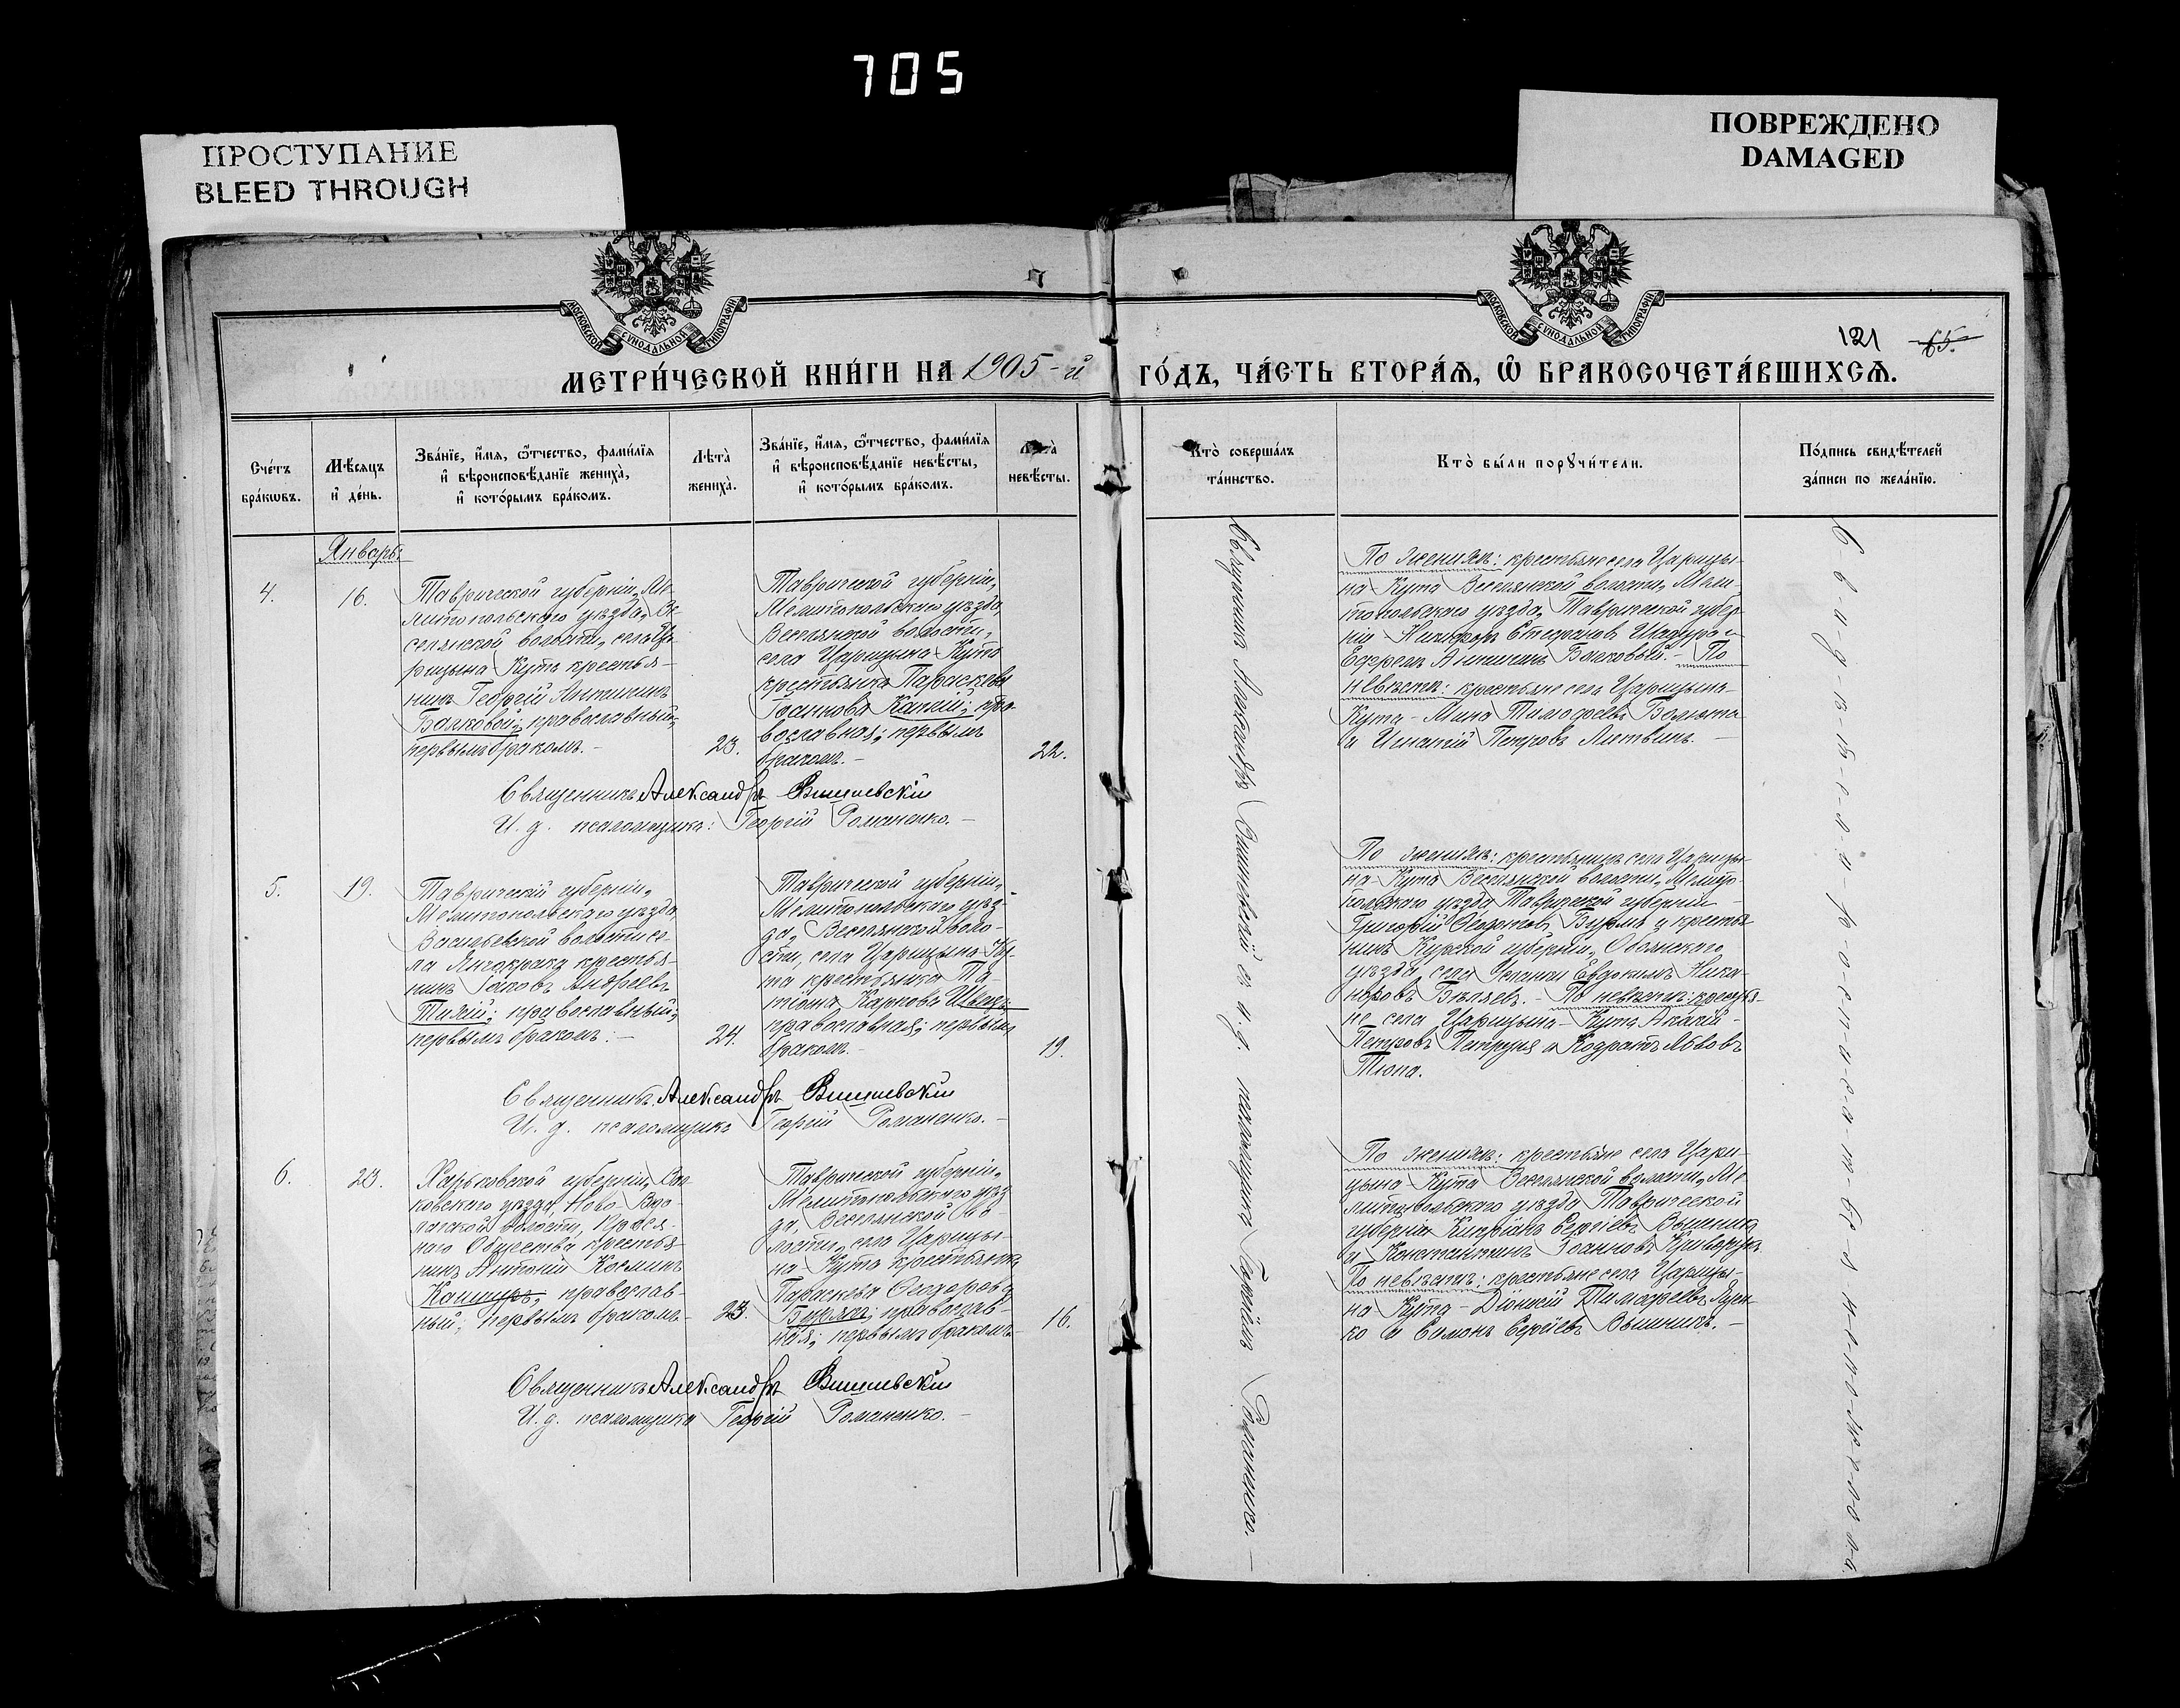 705
ПРОСТУПАНИЕ
BLEED THROUGH
ПОВРЕЖДЕНО
DAMAGED
МОСКОВСКОЙ СѴНОДАЛЬНОЙ ТИПОГРАФІИ
МОСКОВСКОЙ СѴНОДАЛЬНОЙ ТИПОГРАФІИ
121 65.
МЕТРИ́ЧЕСКОЙ КНИ́ГИ НА 1905-й ГО́ДЪ, ЧА́СТЬ ВТОРА́Я, Ѽ БРАКОСОЧЕТА́ВШИХСЯ.
Сче́тъ бра́кѡвъ.
Мѣ́сяцъ и҆ де́нь.
Зва́нїе, и҆́мя, ѻ҆́тчество, фами́лїя
и҆ вѣроисповѣ́данїе жениха̀,
и҆ кото́рымъ бра́комъ.
Лѣта̀ жениха̀.
Зва́нїе, и҆́мя, ѻ҆́тчество, фами́лїя
и҆ вѣроисповѣ́данїе невѣ́сты,
и҆ кото́рымъ бра́комъ.
Лѣта̀ невѣ́сты.
Кто̀ соверша́лъ
та́инство.
Кто̀ бы́ли порꙋчи́тели.
По́дпись свидѣ́телей
за́писи по жела́нїю.
Январь
4.
16.
Таврической губерніи, Ме-
литопольскаго уѣзда, Ве-
селянской волости, села Ца-
рицына Кута крестья-
нинъ Георгій
православный;
первымъ бракомъ. -
23.
Таврической губерніи,
Мелитопольскаго уѣзда,
Веселянской волости,
села Царицына-Кута
крестьянка Параскева
Іоаннова пра-
вославная; первымъ
бракомъ. -
22.
По женихѣ: крестьяне села Царицы-
на Кута Веселянской волости, Мели-
топольскаго уѣзда, Таврической губер-
ніи Никифоръ Стефановъ и
Ефремъ - По
невѣстѣ: крестьяне села Царицына-
Кута - Мина Тимофеевъ
и Игнатій Петровъ Литвинъ. -
Священникъ Александръ Вишневскій
И. д. псаломщика: Георгій Романенко. -
5.
19.
Таврической губерніи,
Мелитопольскаго уѣзда,
Васильевской волости се-
ла Янчокрака крестья-
нинъ Іаковъ Андреевъ
Тихій; православный;
первымъ бракомъ: -
24.
Таврической губерніи,
Мелитопольскаго уѣз-
да, Веселянской воло-
сти, села Царицына-Ку-
та крестьянка Та-
тіана Карпова Швецъ;
православная; первымъ
бракомъ. -
19.
По женихѣ: крестьянинъ села Царицы-
на-Кута Веселянской волости, Мелито-
польскаго уѣзда Таврической губерніи
Григорій Ѳедотовъ и крестья-
нинъ Курской губерніи, Обоянскаго
уѣзда, села Евдокимъ Ника-
норовъ Бѣляевъ. - По невѣстѣ: крестья-
не села Царицына-Кута Акакій
Петровъ Петруня и Кодратъ Львовъ
Тюпа.
Священникъ Александръ Вишневскій
И. д. псаломщика Георгій Романенко. -
6.
23.
Харьковской губерніи, Вал-
ковскаго уѣзда, Ново-Водо-
лагской волости,
Общества крестья-
нинъ Антоній Косминъ
православ-
ный; первымъ бракомъ-
23.
Таврической губерніи,
Мелитопольскаго уѣз-
да, Веселянской во-
лости, села Царицы-
на-Кута крестьянка
Параскева Сидорова
православ-
ная; первымъ бракомъ-
16.
По женихѣ: крестьяне села Цари-
цына Кута Веселянской волости, Ме-
литопольскаго уѣзда Таврической
губерніи Кипріанъ Сергіевъ
и Константинъ Іоанновъ
По невѣстѣ: крестьяне села Царицы-
на-Кута - Діонисій Тимофеевъ
и Симонъ Сергіевъ -
Священникъ Александръ Вишневскій
И. д. псаломщика Георгій Романенко. -
Священникъ Александръ Вишневскій и и. д. псаломщика Георгій Романенко. -